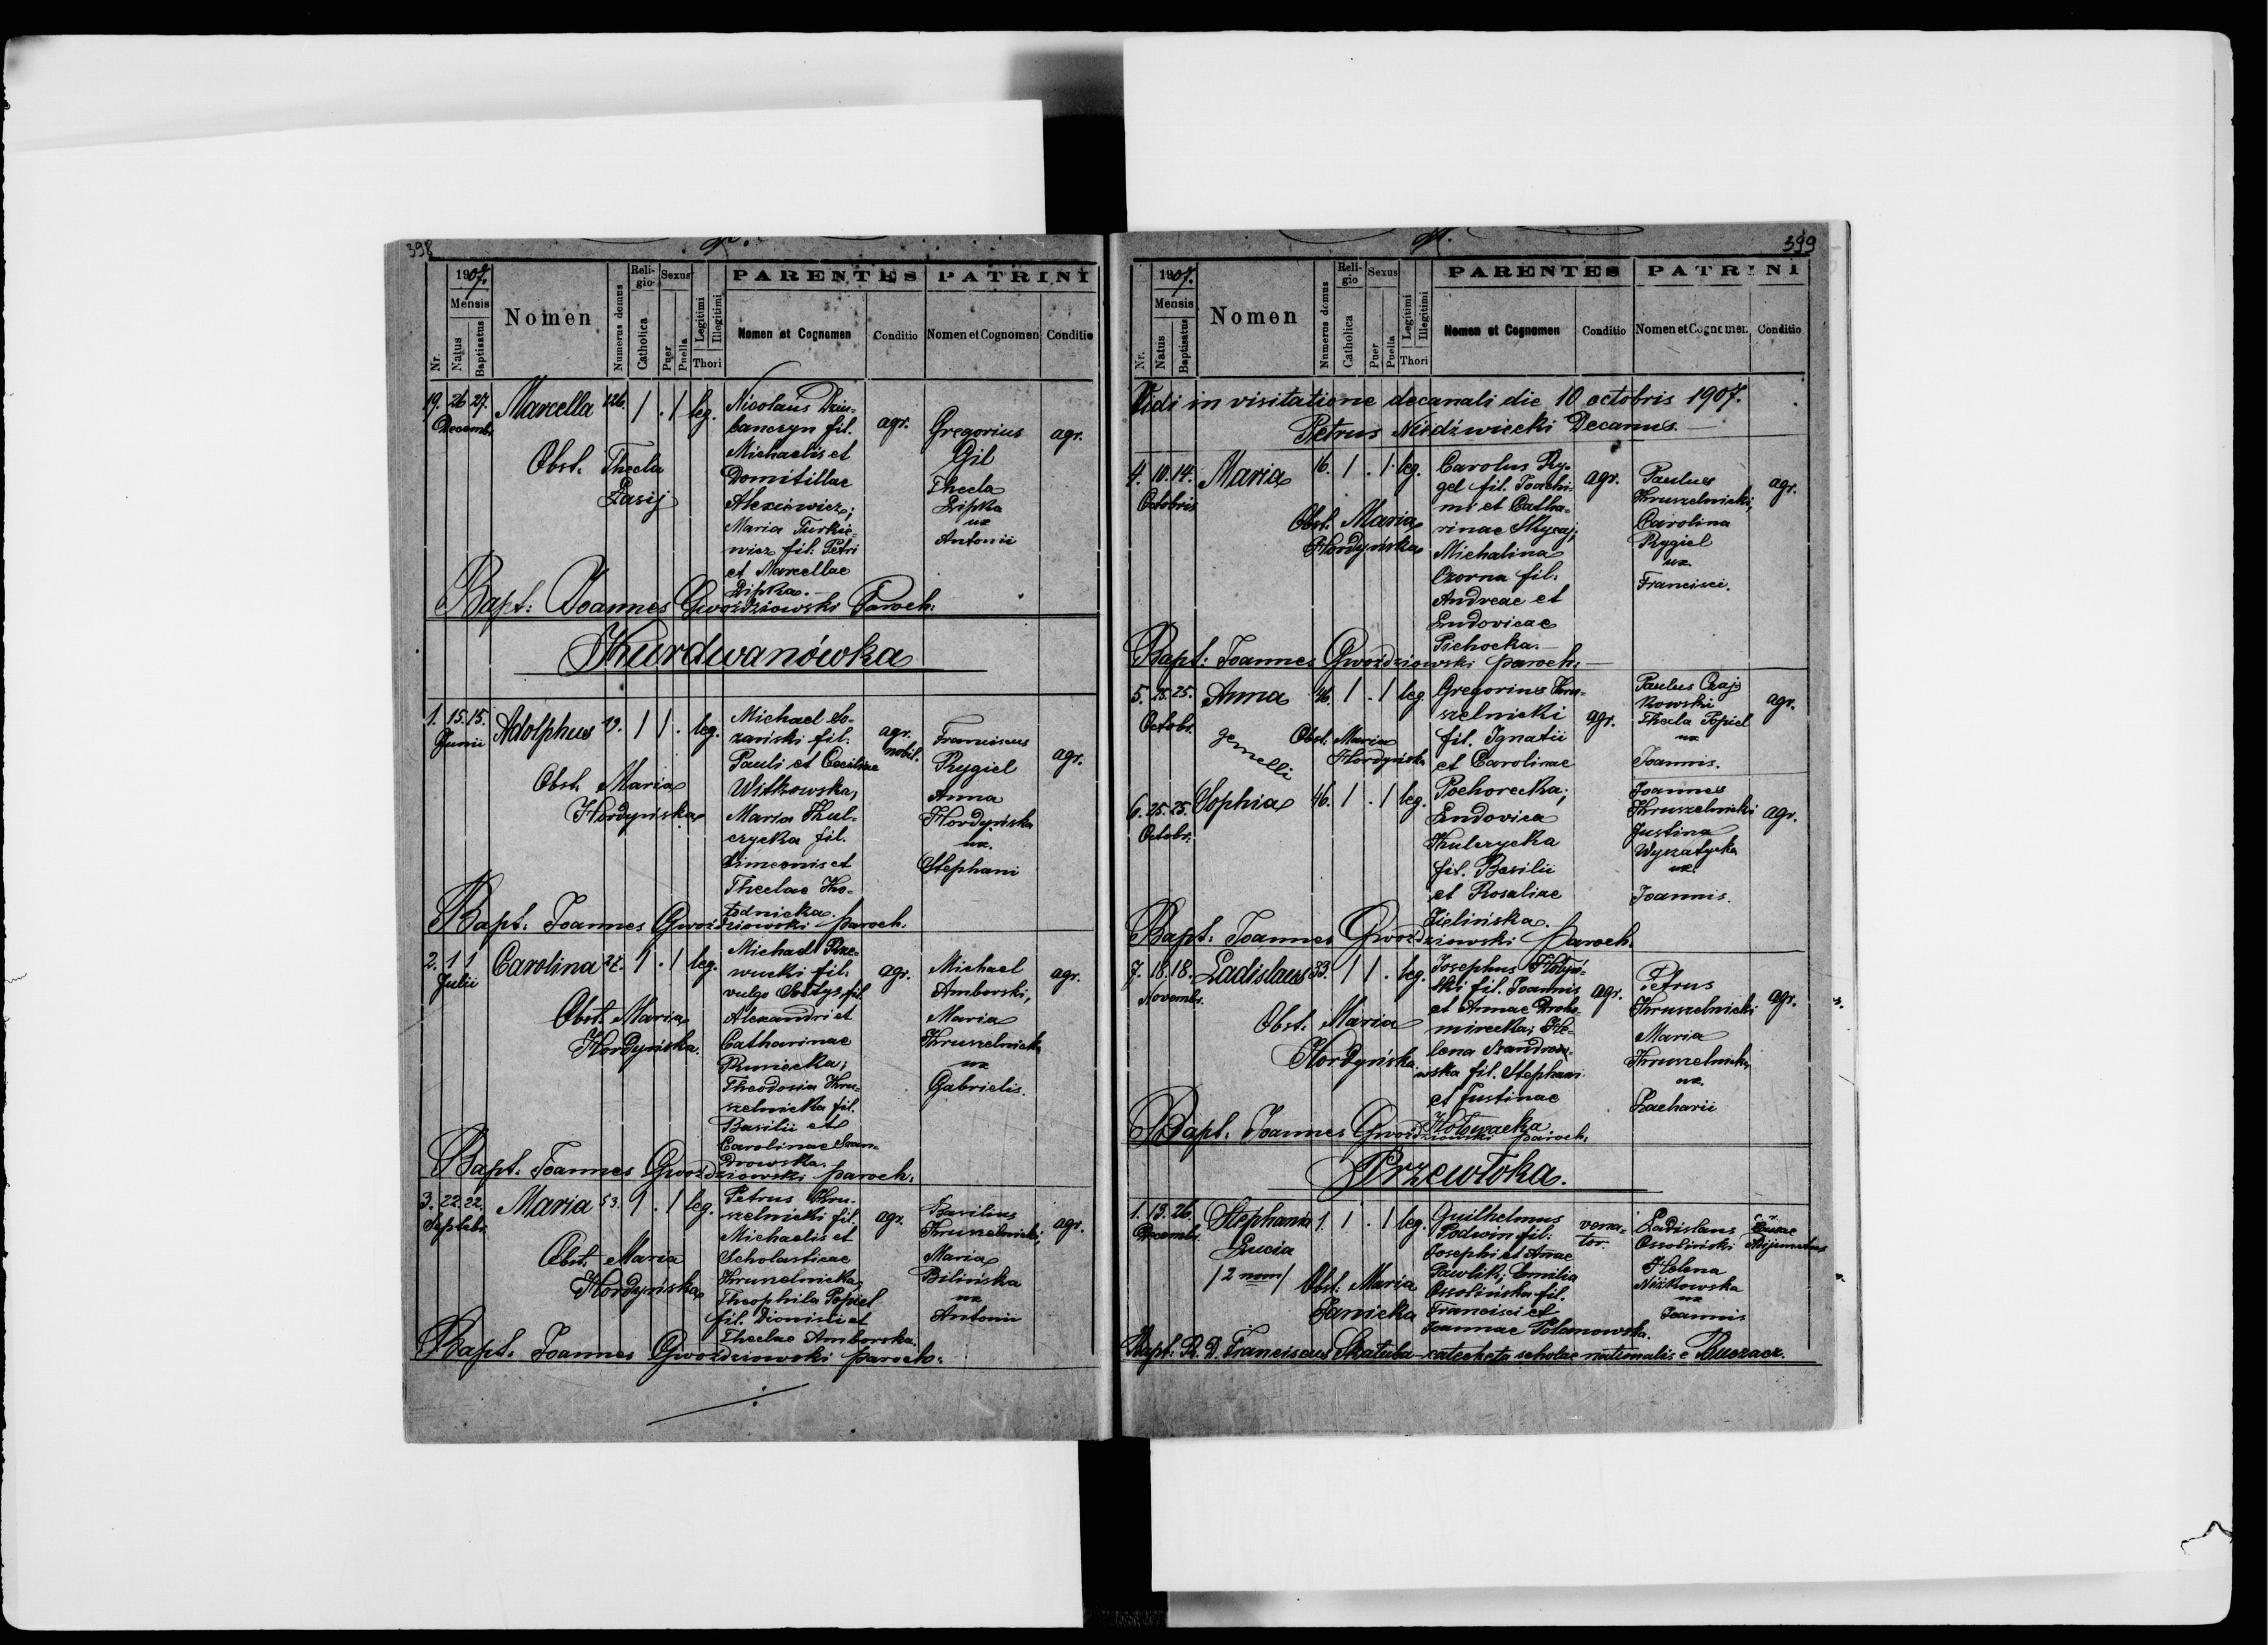 398
1907.
Mensis
Nr.
Natus
Baptisatus
Nomen
Numerus domus
Religio
Catholica
Sexus
Puer
Puella
Legitimi
Illegitimi
Thori
PARENTES
Nomen et Cognomen
Conditio
PATRINI
Nomen et Cognomen
Conditio
19. 26 27. Marcella 126. 1 . 1 leg.
Decembr.
Obst. Thecla
Nicolaus Dziu-
banczyn fil.
Michaelis et
Domitillae
Alexiewicz;
Maria Turkie-
wicz fil. Petri
et Marcellae
Lipka.
agr.
Gregorius
Gil
Thecla
Lipka
ux
Antonii
agr.
Bapt: Joannes Gwoździowski Paroch:
Kurdwanówka
1. 15. 15. Adolphus 19. 1 1 . leg.
Junii
Obst. Maria
Hordyńska
Michael So-
zański fil.
Pauli et Caeciliae
Witkowska;
Maria Kul-
czycka fil.
Simeonis et
Theclae Ko-
łodnicka.
agr.
nobil.
Franciscus
Rygiel
Anna
Hordyńska
ux.
Stephani
agr.
Bapt. Joannes Gwoździowski paroch.
2. 1 1 Carolina 1 . 1 leg.
Julii
Obst. Maria
Hordyńska.
Michael
fil.
vulgo fil.
Alexandri et
Catharinae
Theodosia Kru-
szelnicka fil.
Basilii et
Carolinae Szan-
drowska.
agr.
Michael
Amborski,
Maria
Kruszelnicka
ux
Gabrielis.
agr.
Bapt. Joannes Gwoździowski paroch.
3. 22. 22. Maria 53. 1 . 1 leg.
Septebr.
Obst. Maria
Hordyńska
Petrus Kru-
szelnicki fil.
Michaelis et
Scholasticae
Kruszelnicka,
Theophila Popiel
fil. Dionisii et
Theclae Amborska.
agr.
Basilius
Kruszelnicki,
Maria
Bilińska
ux
Antonii
agr.
Bapt. Joannes Gwoździowski paroch.
399
1907.
Mensis
Nr.
Natus
Baptisatus
Nomen
Numerus domus
Religio
Catholica
Sexus
Puer
Puella
Legitimi
Illegitimi
Thori
PARENTES
Nomen et Cognomen
Conditio
PATRINI
Nomen et Cognomen
Conditio
Vidi in visitatione decanali die 10 octobris 1907.
Petrus Niedźwiecki Decanus.
4. 10. 14. Maria 16. 1 . 1. leg.
Octobris
Obst. Maria
Hordyńska
Carolus Ry-
giel fil. Joachi-
mi et Catha-
rinae
Michalina
Czorna fil.
Andreae et
Ludovicae
Pichocka.
agr.
Paulus
Kruszelnicki,
Carolina
Rygiel
ux.
Francisci.
agr.
Bapt: Joannes Gwoździowski paroch.
5. 25. 25. Anna 46. 1 . 1 leg.
Octobr.
gemelli
Obst. Maria
Hordyńska
6. 25. 25. Sophia 46. 1 . 1 leg.
Octobr.
Gregorius Kru-
szelnicki
fil. Ignatii
et Carolinae
Pohorecka;
Ludovica
Kulczycka
fil. Basilii
et Rosaliae
Zielińska.
agr.
Paulus Czaj-
kowski
Thecla Popiel
ux
Joannis.
agr.
Joannes
Kruszelnicki
Justina
Wyszatycka
ux.
Joannis.
agr.
Bapt. Joannes Gwoździowski paroch.
7. 18. 18. Ladislaus 53. 1 1 . leg.
Novembr.
Obst. Maria
Hordyńska.
Josephus Hołyń-
ski fil. Joannis
et Annae Droho-
mirecka; He-
lena Szandrow-
ska fil. Stephani
et Justinae
Hołowacka
agr.
Petrus
Kruszelnicki
Maria
Kruszelnicka
ux
Zacharii
agr.
Bapt. Joannes Gwoździowski paroch.
Przewłoka.
1. 13. 26. Stephania 1. 1 . 1 leg.
Decembr.
Lucia
/2 nom/
Obst. Maria
Janicka
Guilhelmus
Podwin fil.
Josephi et Annae
Pawlik; Emilia
Ossolińska fil.
Francisci et
Joannae Polanowska.
vena-
tor.
Ladislaus
Ossoliński
Helena
Niżkowska
ux
Joannis
Bapt. R. D. Franciscus Skałuba - catecheta scholae e Buczacz.